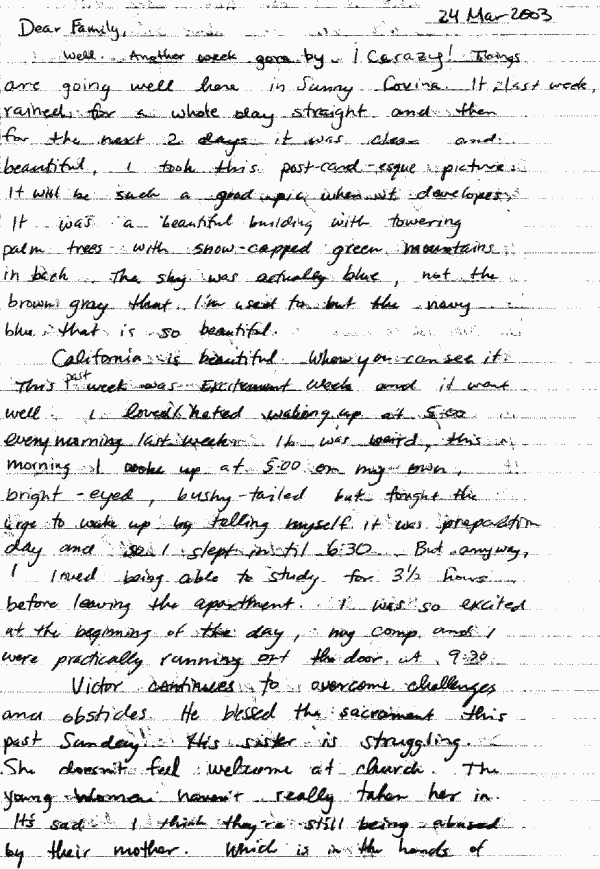 24 Mar 2003
Dear Family,
Well. Another week gone by. Crazy! Things
are going well here in Sunny Covina. It last week,
rained for a whole day straight and then
for the next 2 days it was clear and
beautiful, I took this post-card-esque picture.
It will be such a good pic when it developes.
It was a beautiful building with towering
palm trees with snow-capped green mountains
in back. The sky was actually blue, not the
brown gray that I'm used to but the navy
blue that is so beautiful.
California is beautiful when you can see it.
This past week was Excitement Week and it went
well. I loved/hated waking up at 5:00
every morning last week. It was weird, this
morning I woke up at 5:00 on my own,
bright-eyed, bushy-tailed but fought the
urge to wake up by telling myself it was preparation
day and so I slept in til 6:30. But anyway,
I loved being able to study for 3 1/2 hours
before leaving the apartment. I was so excited
at the beginning of the day, my comp. and I
were practically running out the door at 9:30
Victor continues to overcome challenges
and obsticles. He blessed the sacrament this
past Sunday! His sister is struggling.
She doesn't feel welcome at church. The
young women haven't really taken her in.
It's sad. I think they're still being abused
by their mother. Which is in the hands of